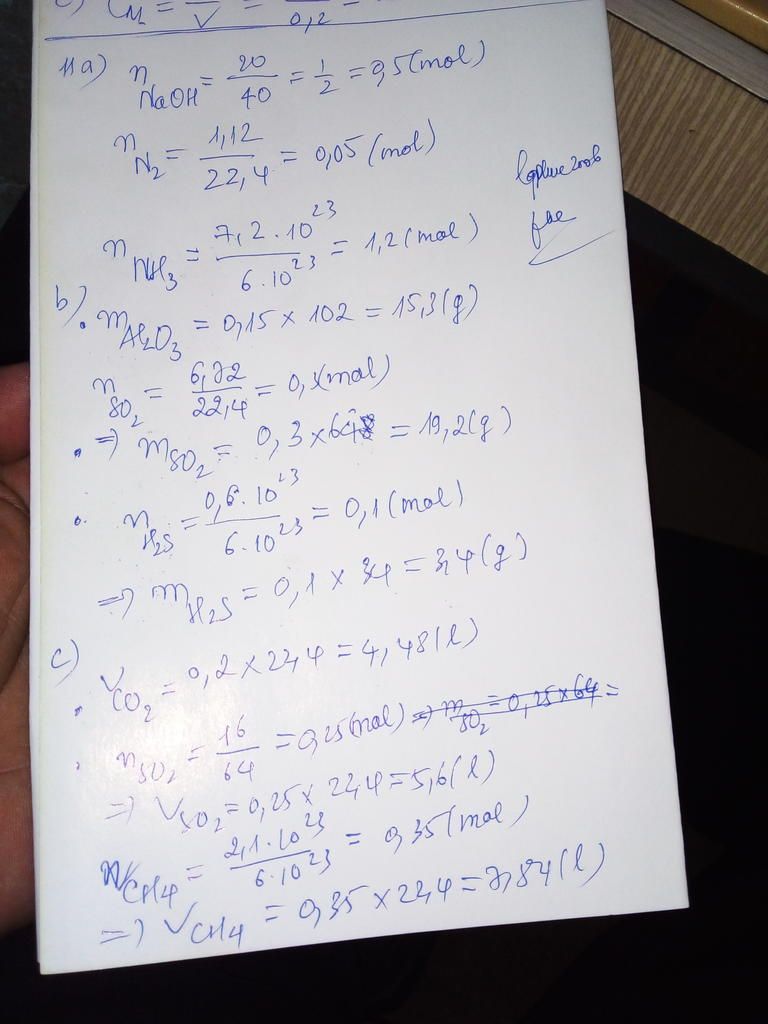 c) C_M = —/V = —/0,2 =
11 a) n_NaOH = 20/40 = 1/2 = 0,5 (mol)
n_N₂ = 1,12/22,4 = 0,05 (mol)
n_NH₃ = 7,2 . 10²³/6 . 10²³ = 1,2 (mol)
b) . m_Al₂O₃ = 0,15 × 102 = 15,3 (g)
n_SO₂ = 6,72/22,4 = 0,3 (mol)
. => m_SO₂ = 0,3 × 64 = 19,2 (g)
. n_H₂S = 0,6 . 10²³/6 . 10²³ = 0,1 (mol)
=> m_H₂S = 0,1 × 34 = 3,4 (g)
c) . V_CO₂ = 0,2 × 22,4 = 4,48 (l)
. n_SO₂ = 16/64 = 0,25 (mol) => m_SO₂ = 0,25 × 64 =
=> V_SO₂ = 0,25 × 22,4 = 5,6 (l)
n_CH₄ = 2,1 . 10²³/6 . 10²³ = 0,35 (mol)
=> V_CH₄ = 0,35 × 22,4 = 7,84 (l)